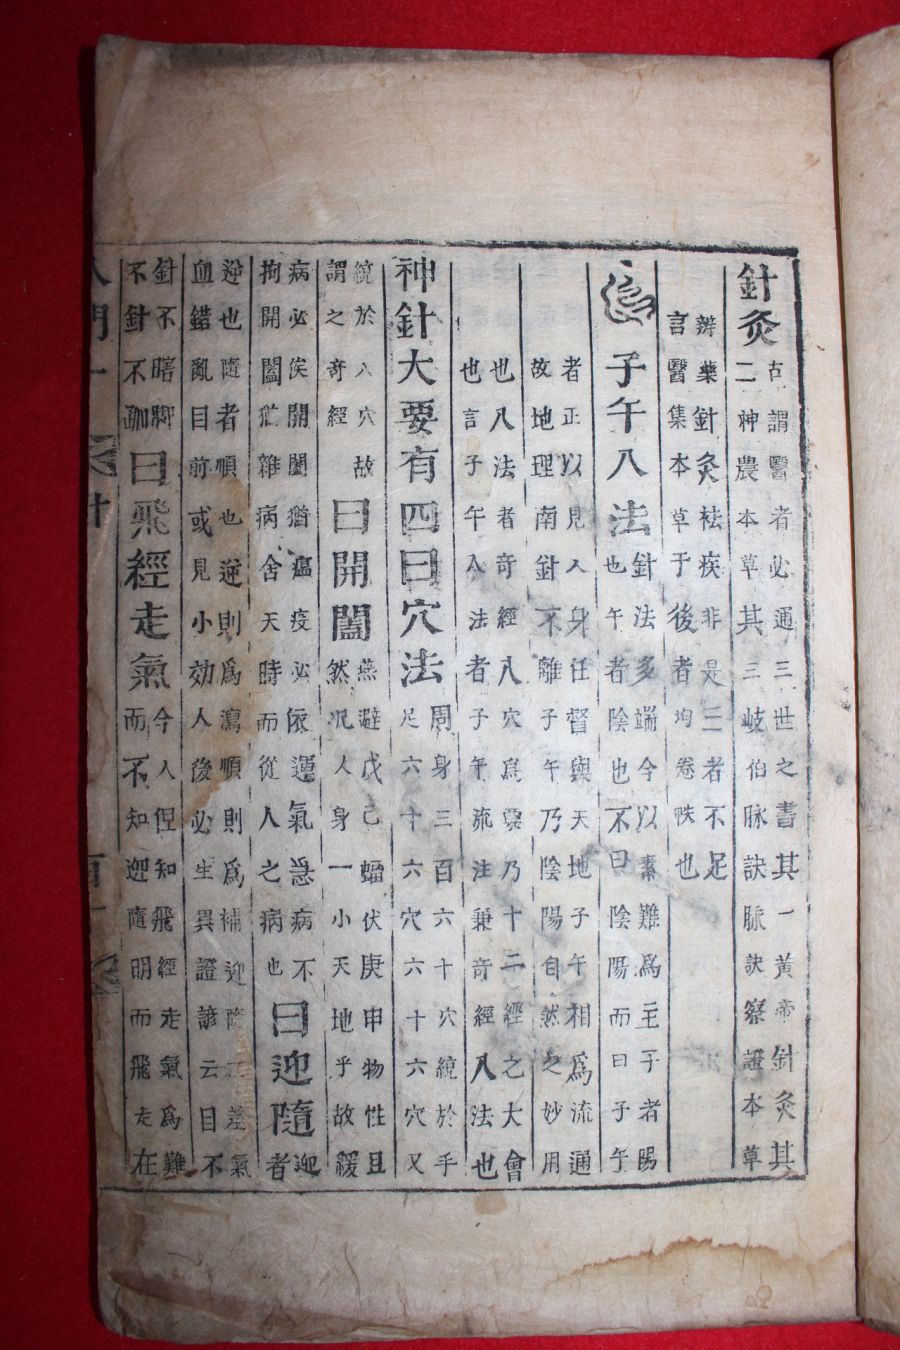 針灸
古謂醫者必通三世之書其一黃帝針灸其
二神農本草其三岐伯脉訣脉訣察證本草
辨藥針灸祛疾非是三者不足
言醫集本草于後者均卷帙也
子午八法
針法多端今以素難爲主子者陽
也午者陰也不曰陰陽而曰子午
者正以見人身任督與天地子午相爲流通
故地理南針不離子午乃陰陽自然之妙用
也八法者奇經八穴爲要乃十二經之大會
也言子午八法者子午流注兼奇經八法也
神針大要有四曰穴法
周身三百六十穴統於手
足六十六穴六十六穴又
統於八穴故
謂之奇經
曰開闔
燕避戊己蝠伏庚申物性且
然况人身一小天地乎故緩
病必俟開闔猶瘟疫必依運氣急病不
拘開闔猶雜病舍天時而從人之病也
曰迎隨
迎者
逆也隨者順也逆則爲瀉順則爲補迎隨一差氣
血錯亂目前或見小効人後必生異證諺云目不
針不瞎脚
不針不跏
曰飛經走氣
今人但知飛經走氣爲難
而不知迎隨明而飛走在
門
針